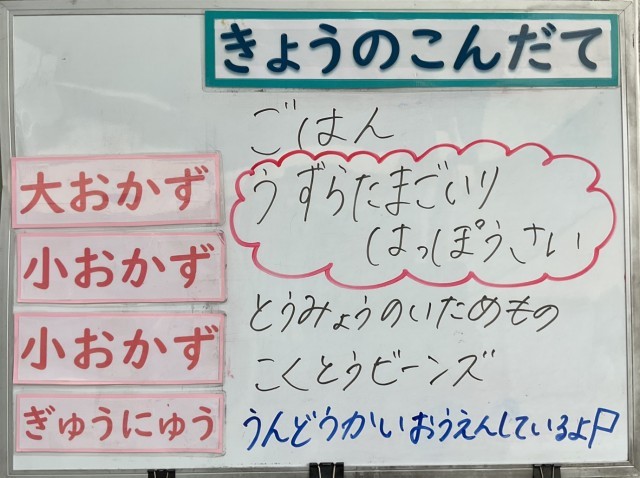 きょうのこんだて
ごはん
大おかず
うずらたまごいり
はっぽうさい
小おかず
とうみょうのいためもの
小おかず
こくとうビーンズ
ぎゅうにゅう
うんどうかいおうえんしているよ